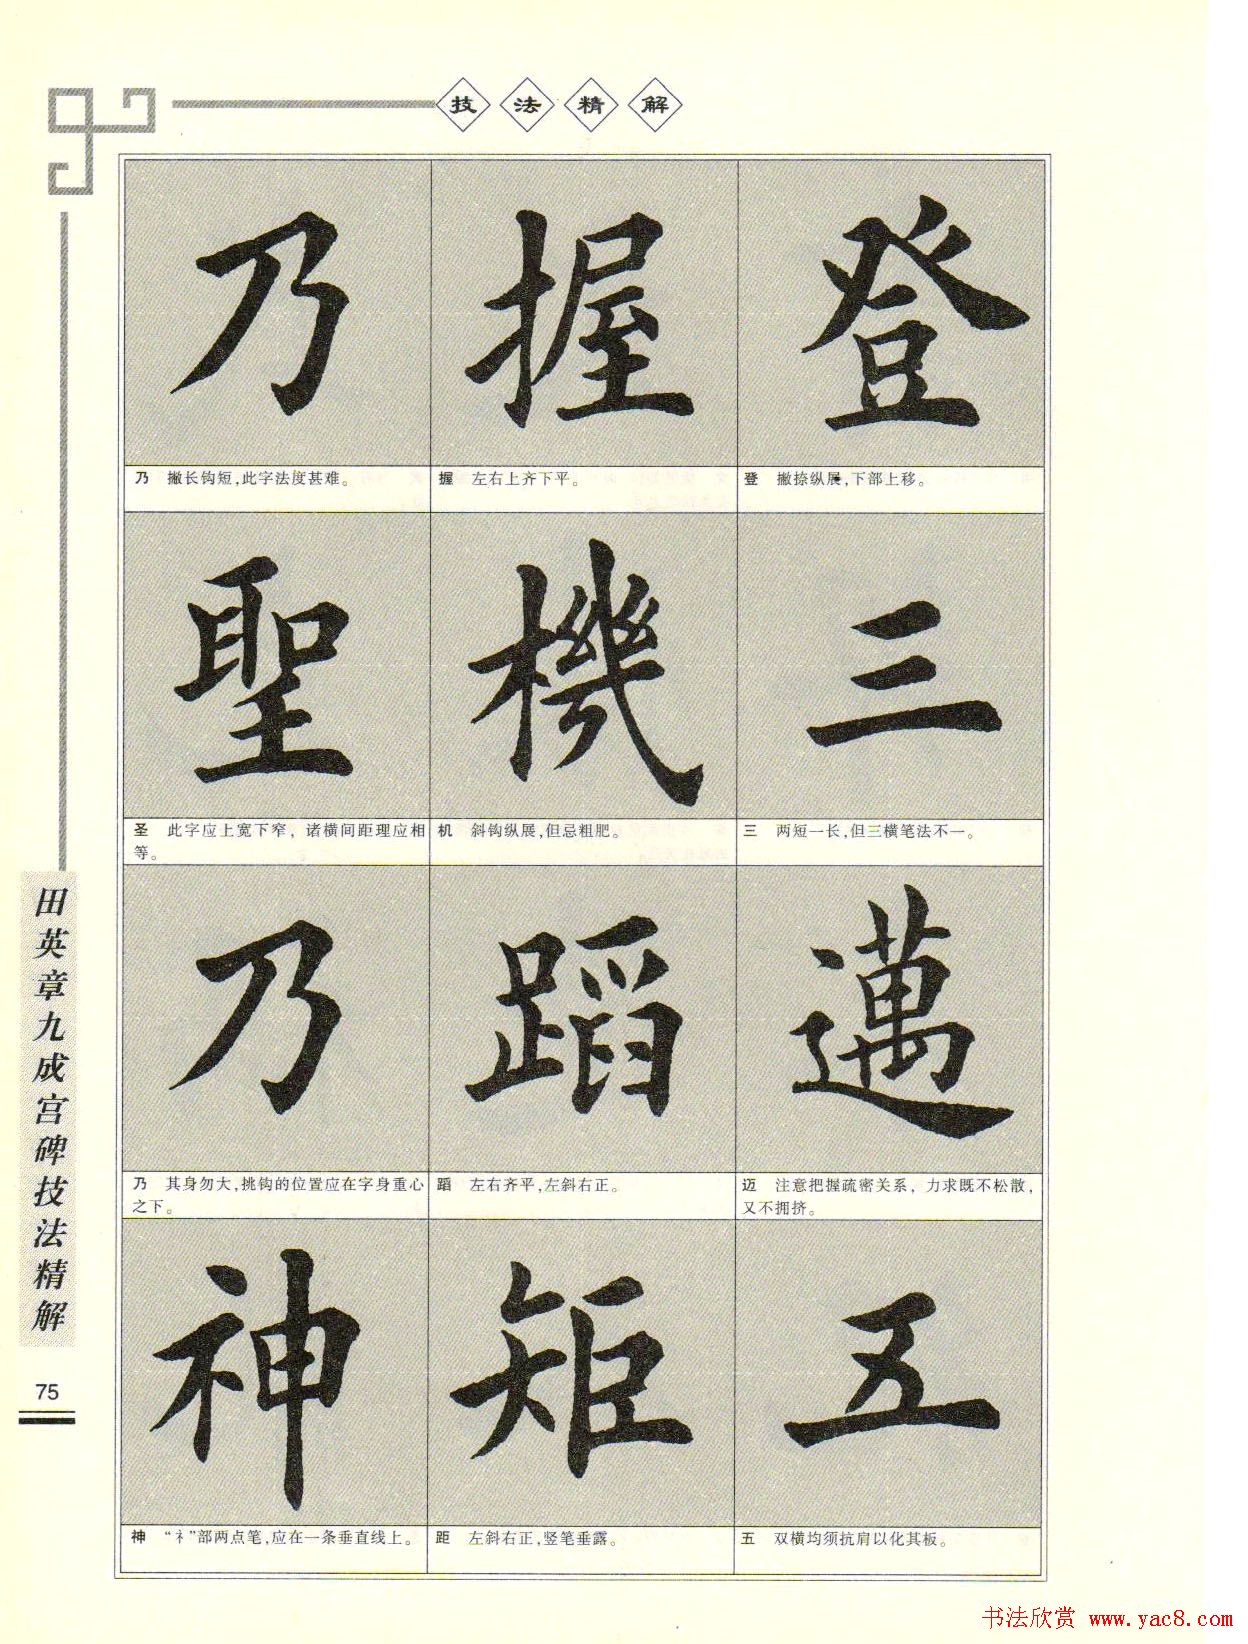 技法精解
乃 握 登
乃 撇长钩短,此字法度甚难。
握 左右上齐下平。
登 撇捺纵展,下部上移。
聖 機 三
圣 此字应上宽下窄，诸横间距理应相
等。
机 斜钩纵展,但忌粗肥。
三 两短一长,但三横笔法不一。
乃 蹈 邁
乃 其身勿大,挑钩的位置应在字身重心
之下。
蹈 左右齐平,左斜右正。
迈 注意把握疏密关系，力求既不松散，
又不拥挤。
神 矩 五
神 “礻”部两点笔,应在一条垂直线上。
距 左斜右正,竖笔垂露。
五 双横均须抗肩以化其板。
田英章九成宫碑技法精解
75
书法欣赏 www.yac8.com